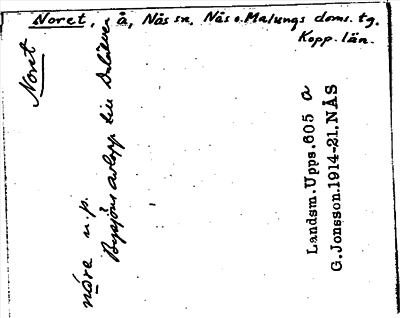 Noret, å, Nås sn, Nås o. Malungs doms. tg.
Kopp. län.
Noret
nóre n.p.
Bysjöns avlopp till Dalälven
Landsm. Upps. 605 a
G. Jonsson. 1914-21. NÅS